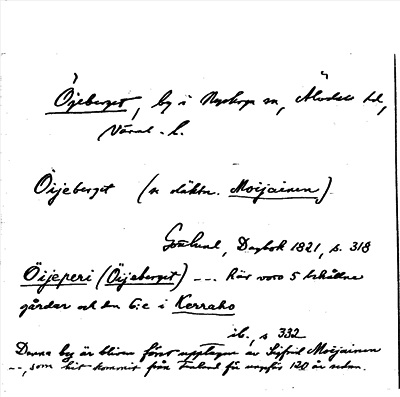 Öjeberget, by i Nyskoga sn, Älvdals hd,
Värml. l.
Öijeberget (se släktn. Moijainen)
Gottlund, Dagbok 1821, s. 318
Öijeperi (Öijeberget) --- Här voro 5 åbo
gårdar och den 6:e i Kerraho
ib., s 332
Denna by är bliven först upptagen av Sigfrid Moijainen
--, som hit kommit från Finland för ungefär 120 år sedan.